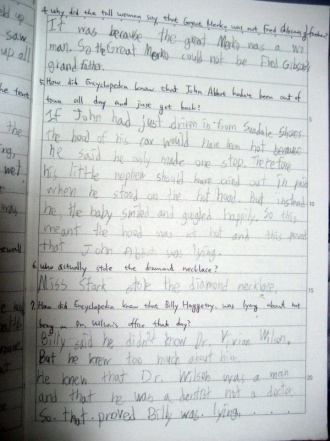 4. Why did the tall woman say that Great Merko was not Fred Gibson's grandfather?
It was because the great Merko was a wo
man. So the Great Merko could not be Fred Gibson's
grandfather.
5. How did Encyclopedia know that John Abbot hadn't been out of
town all day and just got back?
If John had just driven in from Shores
the hood of his car would have been hot because
he said he only made one stop. Therefore
his little nephew should have cried out in pain
when he stood on the hot hood. But instead
he, the baby smiled and giggled happily. So this
meant the hood was not hot and this proved
that John Abbot was lying.
6. Who actually stole the diamond necklace?
Miss Stark stole the diamond necklace.
7. How did Encyclopedia know that Billy Haggerty was lying about not
being in Dr. Wilson's office that day?
Billy said he didn't know Dr. Vivian Wilson.
But he knew too much about him.
he knew that Dr. Wilson was a man
and that he was a dentist not a doctor.
So that proved Billy was lying.